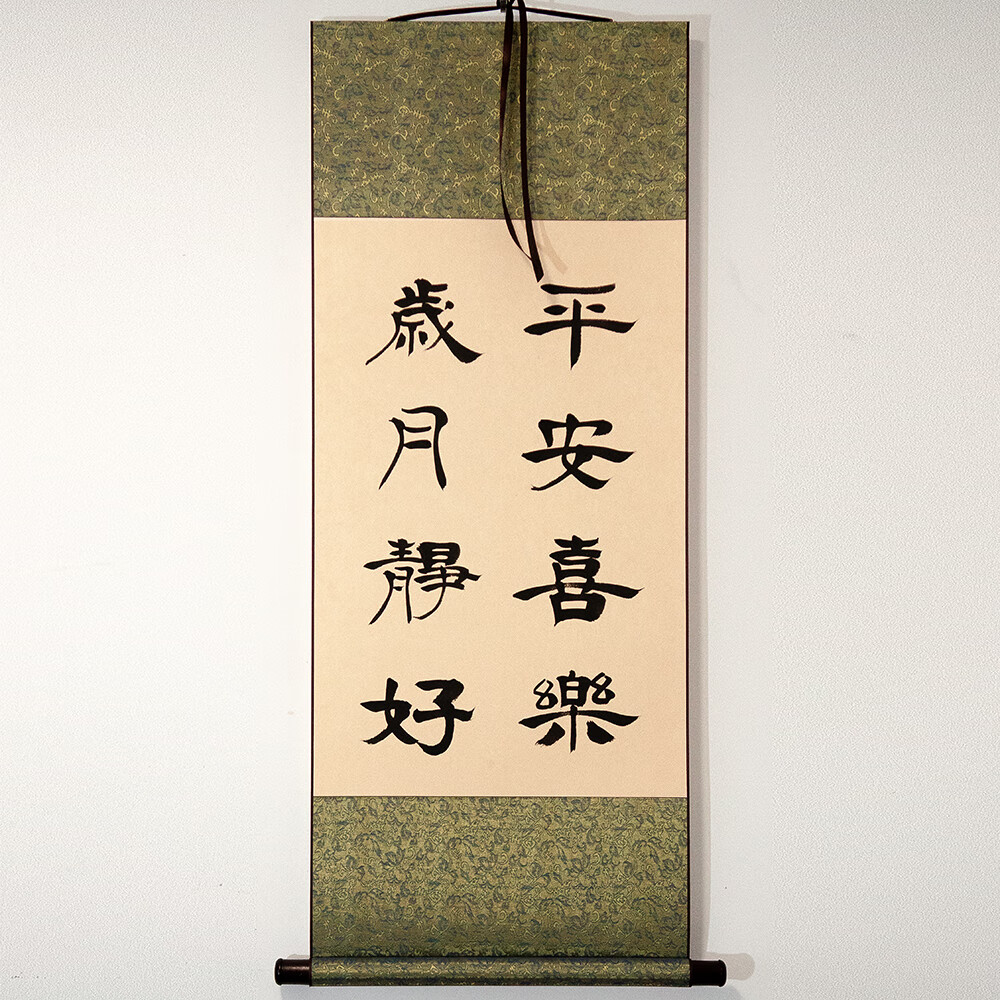 平安喜樂
歲月靜好